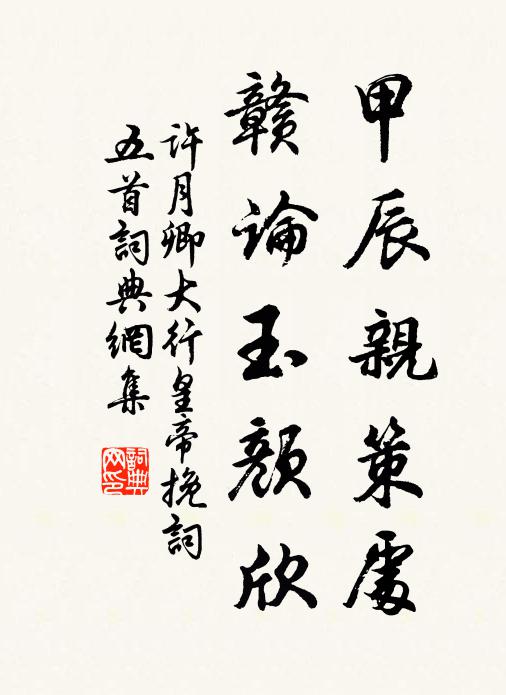 甲辰親策處
贛論玉顏欣
許月卿大行皇帝挽詞
五首詞典網集
詞典
网印